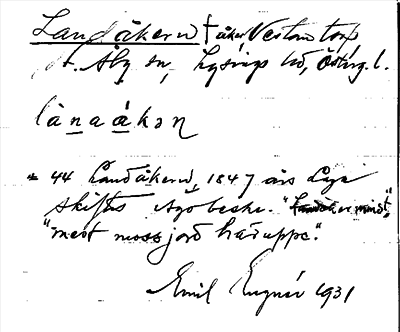 Landåkern †åker Vestantorp
Åby sn, Lysings hd, Österg. l.
lànaákən
44 Landåkern, 1847 års Laga
skiftes Ägobeskr.
"mest mossjord häruppe".
Emil 1931